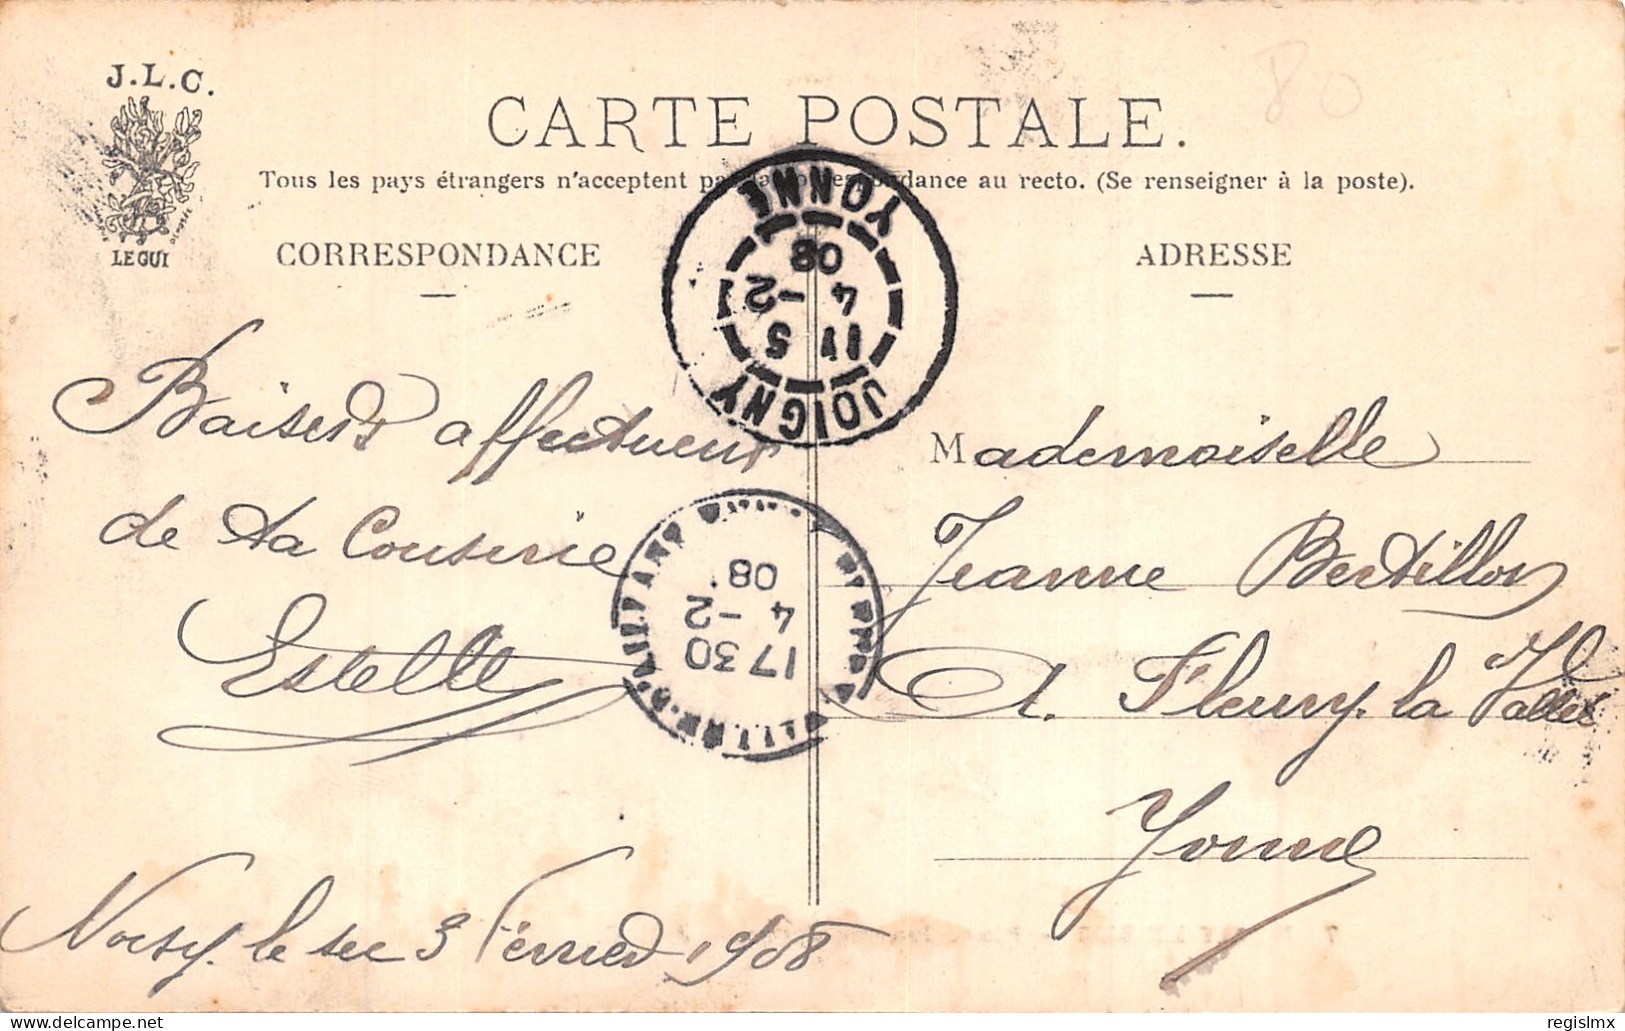 J.L.C.
LE GUI
80
CARTE POSTALE.
Tous les pays étrangers n'acceptent pas la correspondance au recto. (Se renseigner à la poste).
CORRESPONDANCE
ADRESSE
JOIGNY
11 5
4 -2
08
YONNE
Baisers affectueux
de ta Cousine
Estelle
Noisy. le sec 3 Février 1908
17 30
4 -2
08
Mademoiselle
Jeanne Bertillon
A. Fleury. la Vallée
Yonne
regislmx
www.delcampe.net